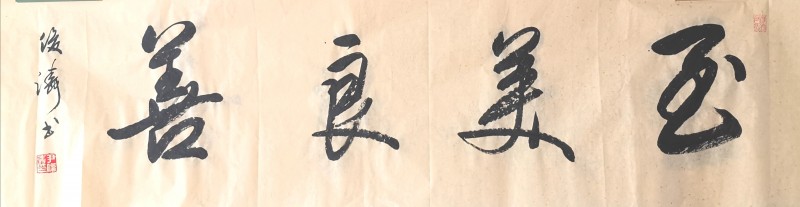 至美良善
俊濤书